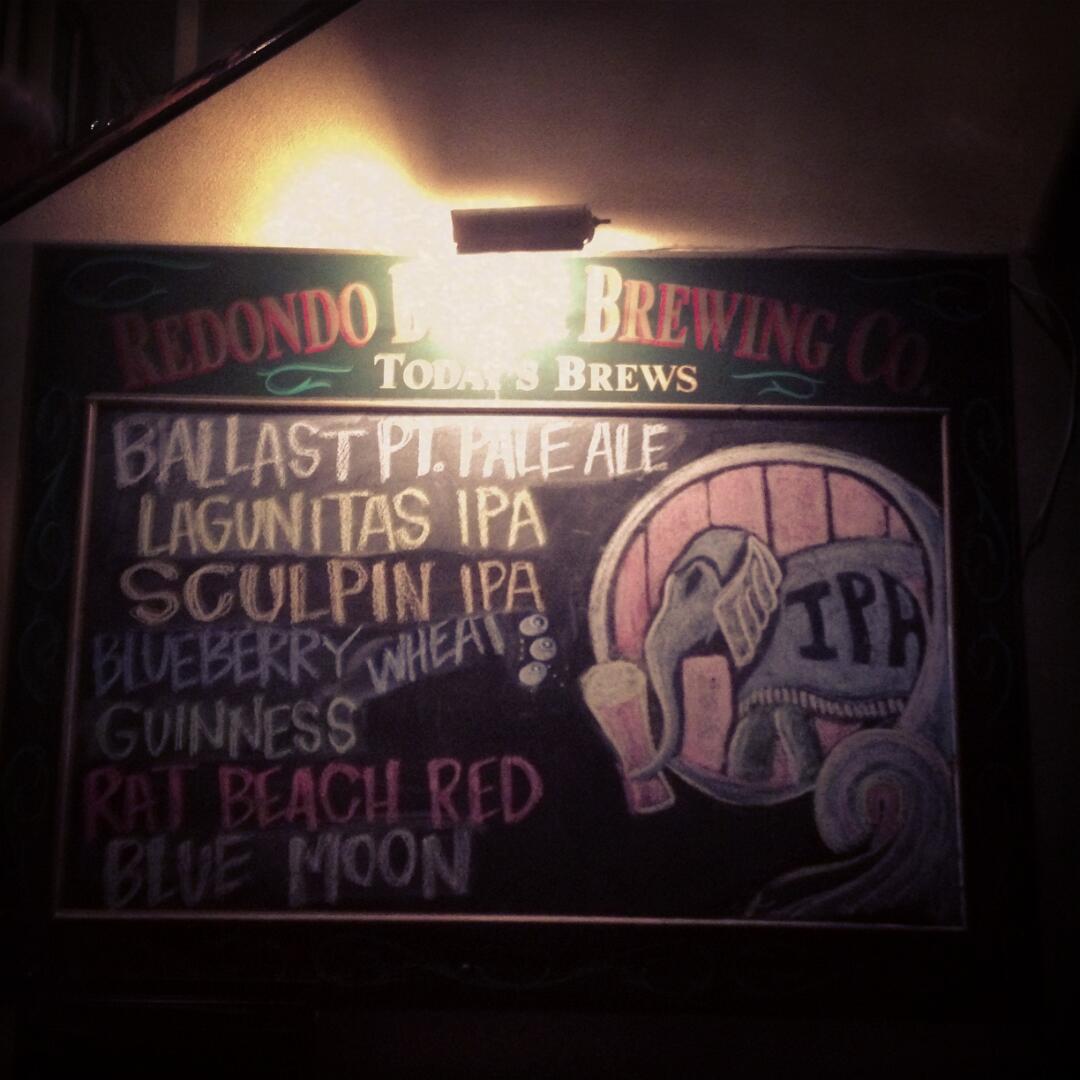 REDONDO BREWING CO.
TODAY'S BREWS
BALLAST PT. PALE ALE
LAGUNITAS IPA
SCULPIN IPA
BLUEBERRY WHEAT
GUINNESS
RAT BEACH RED
BLUE MOON
IPA